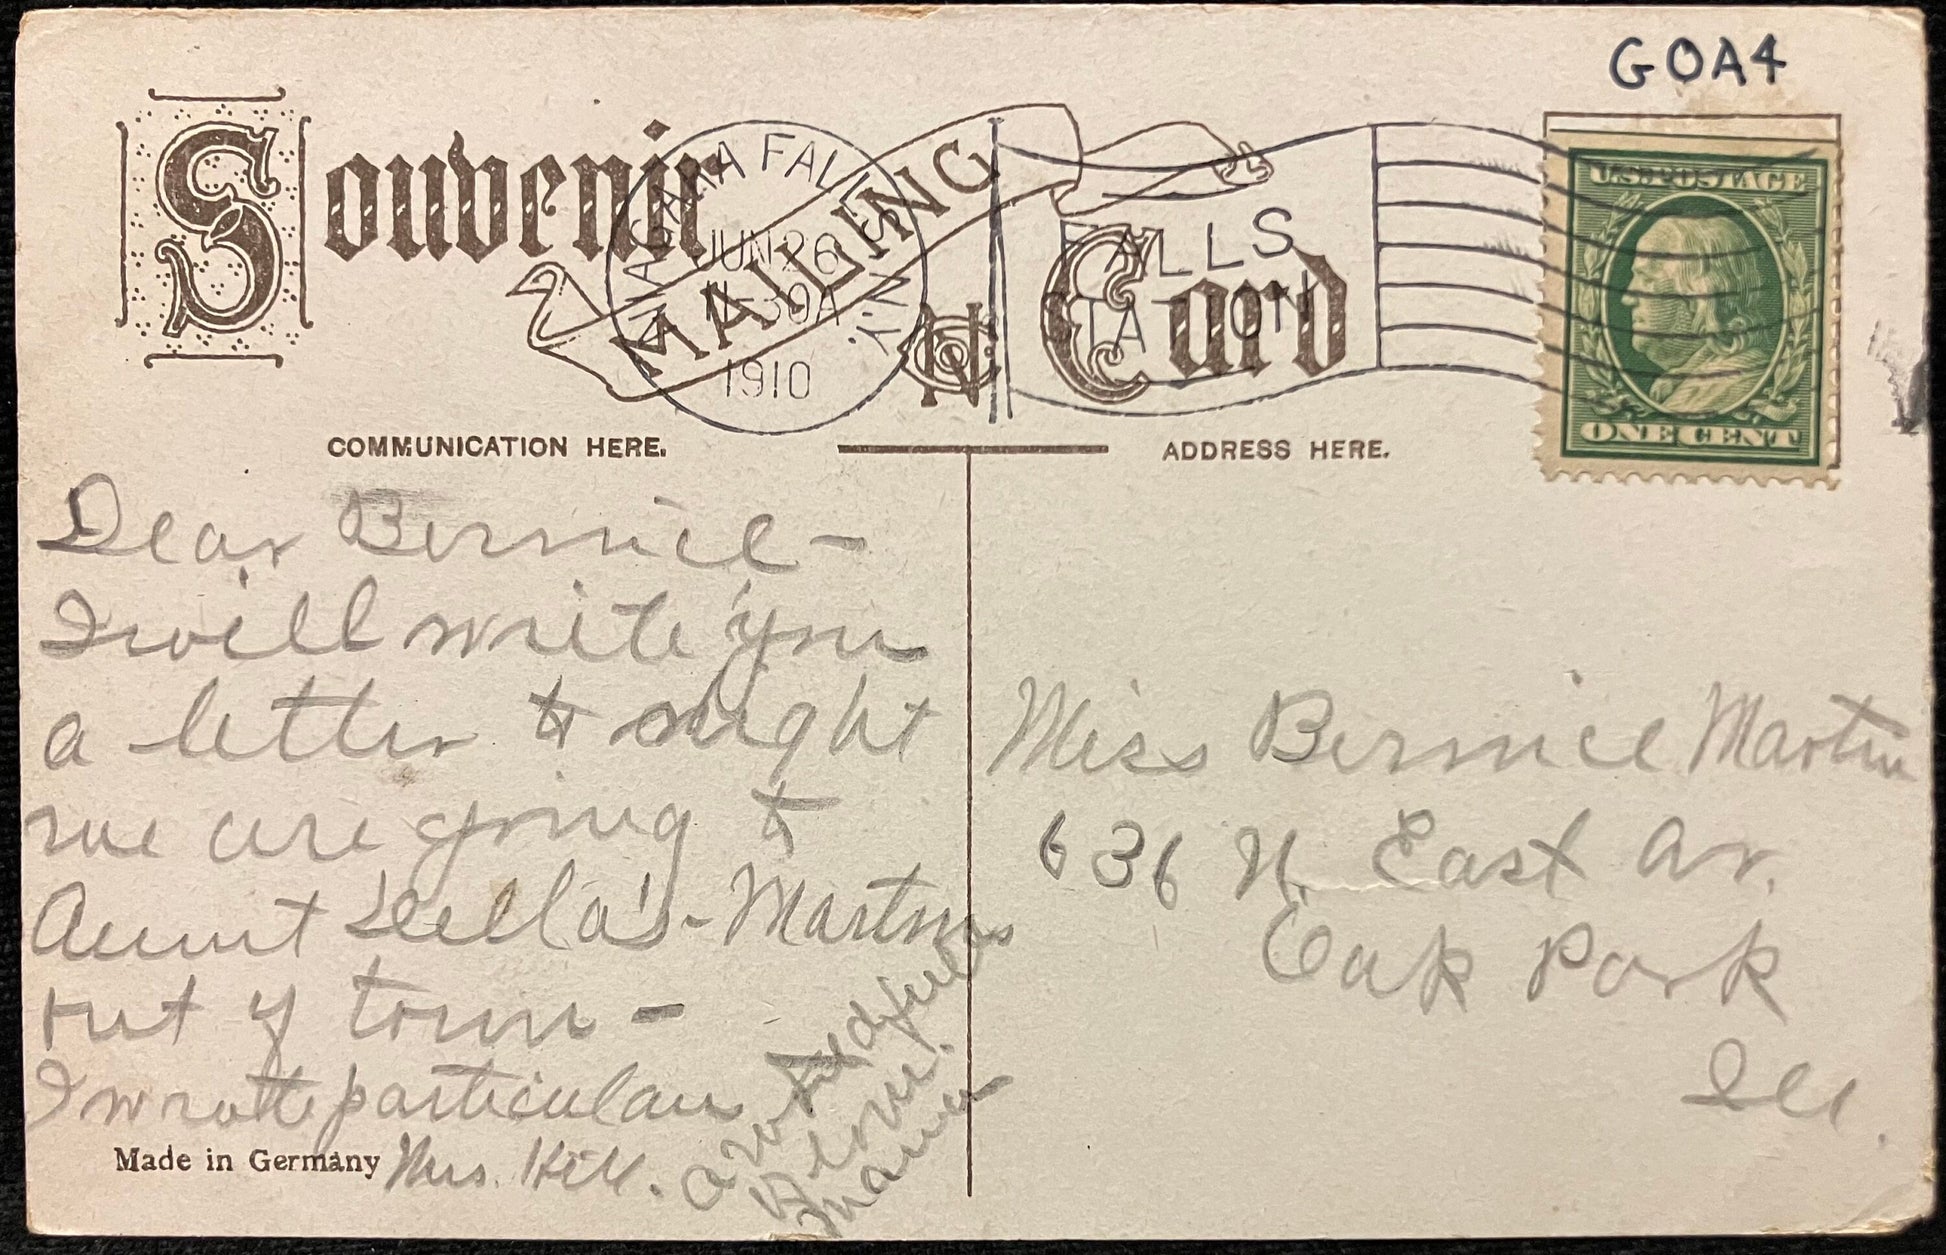 GOA4
Souvenir MAILING Card
NIAGARA FALLS N.Y.
JUN 26
11-30A
1910
FALLS
STATION
U.S. POSTAGE
ONE CENT
COMMUNICATION HERE.
ADDRESS HERE.
Dear Bernice -
I will write you
a letter to night
we are going to
Aunt Della's - Martins
out of town -
I wrote particulars to
Mrs. Hill.
Made in Germany
Mama
Miss Bernice Martin
636 N. East Av.
Oak Park
Ill.